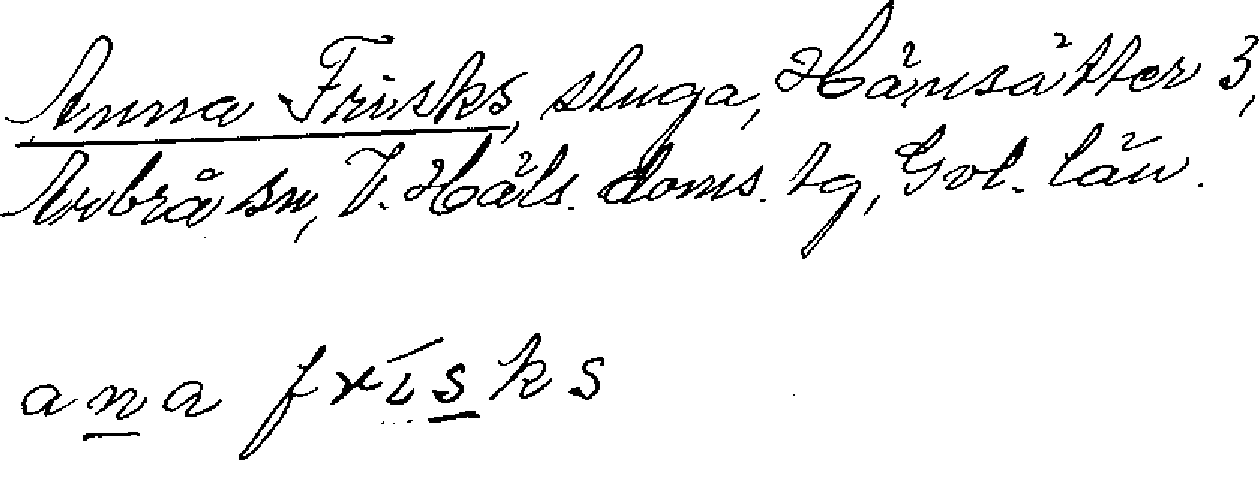 Anna Frisks, stuga, Hänsätter 3,
Arbrå sn, V. Häls. doms. tg, Gvl. län.
ana frisks